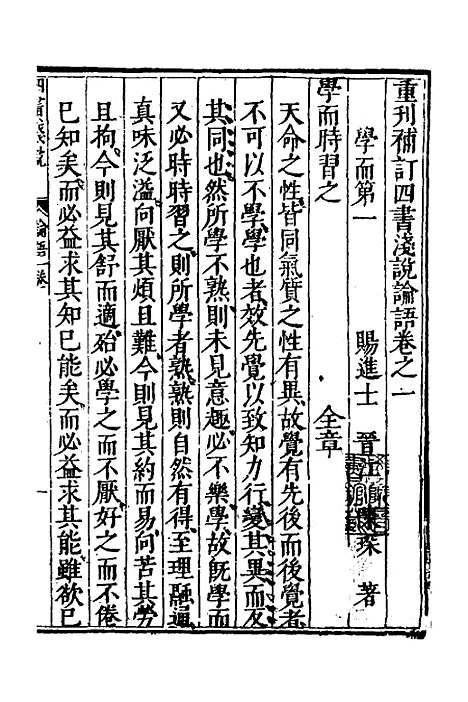 重刊補訂四書淺說論語卷之一
學而第一　賜進士　晉江　琛　著
學而時習之　全章
天命之性皆同氣質之性有異故覺有先後而後覺者
不可以不學學也者效先覺以致知力行變其異而反
其同也然所學不熟則未見意趣必不樂學故旣學而
又必時時習之則所學者熟熟則自然有得至理融通
真味泛溢向厭其煩且難今則見其約而易向苦其勞
且拘今則見其舒而適殆必學之而不厭好之而不倦
已知矣而必益求其知已能矣而必益求其能雖欲已
四書淺說　論語一卷　一